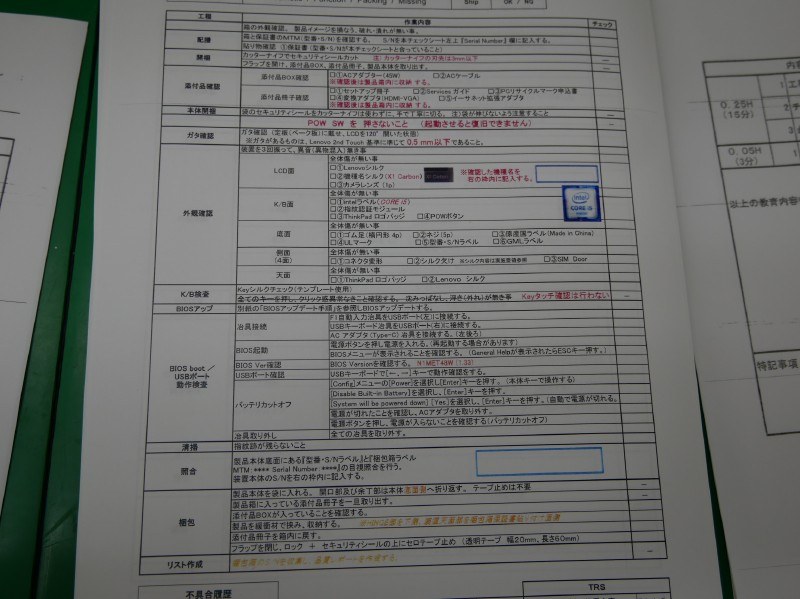 工程 作業内容 チェック
箱の外観確認。 製品イメージを損なう、破れ・濡れが無い事。
配膳 箱と保証書のMTM(型番・S/N)を確認する。 S/Nを本チェックシート左上『Serial Number』欄に記入する。
貼り物確認 ①保証書(型番・S/Nが本チェックシートと合っていること)
開梱 カッターナイフでセキュリティシールカット 注 カッターナイフの刃先は3mm以下
フラップを開け、付属品BOX、付属品冊子、製品本体を取り出す。
付属品確認 付属品BOX確認 □①ACアダプター(45W) □②ACケーブル
※確認後は製品箱内に収納する。
付属品冊子確認 □①セットアップ冊子 □②Services ガイド □③PCリサイクルマーク申込書
□④変換アダプタ(HDMI-VGA) □⑤イーサネット拡張アダプタ
※確認後は製品箱内に収納する。
本体開梱 袋のセキュリティシールをカッターナイフは使わずに、手で丁寧に切る。 注)袋が伸びないよう注意すること
POW SW を 押さないこと (起動させると復旧できません)
ガタ確認 ガタ確認 (定盤(ベーク板)に載せ、LCDを120°開いた状態)
※ガタがあるものは、Lenovo 2nd Touch 基準に準じて0.5 mm以下であること。
装置を3回振って、異音(異物混入)無き事
外観確認 LCD面 全体傷が無い事
□①Lenovoシルク
□②機種名シルク(X1 Carbon) ※確認した機種名を右の枠内に記入する。
□③カメラレンズ (1p)
K/B面 全体傷が無い事
□①Intelラベル(CORE i5)
□②指紋認証モジュール
□③ThinkPad ロゴバッジ □④POWボタン
intel CORE i5
底面 全体傷が無い事
□①ゴム足(楕円形 4p) □②ネジ(5p) □③原産国ラベル(Made in China)
□④ULマーク □⑤型番・S/Nラベル □⑥GMLラベル
側面(4面) 全体傷が無い事
□①コネクタ変形 □②シルク欠け ※シルク内容は実施要領参照 □③SIM Door
天面 全体傷が無い事
□①ThinkPad ロゴバッジ □②Lenovo シルク
K/B検査 Keyシルクチェック(テンプレート使用)
全てのキーを押し、クリック感異常なきこと確認する。 沈みっぱなし、浮き(外れ)が無き事 Keyタッチ確認は行わない
BIOSアップ 別紙の「BIOSアップデート手順」を参照してする。
BIOS boot / USBポート 動作検査 治具接続 FI自動入力治具をUSBポート(左)に接続する。
USBキーボード治具をUSBポート(右)に接続する。
AC アダプタ(Type-C)治具を接続する。(左後ろ)
BIOS起動 電源ボタンを押し電源を入れる。(再起動する場合があります)
BIOSメニューが表示されることを確認する。 (General Helpが表示されたらESCキー押す。)
BIOS Ver確認 BIOS Versionを確認する。 N1MET48W (1.33)
USBポート確認 USBキーボードで[←、→]キーで動作確認をする。
バッテリカットオフ [Config]メニューの[Power]を選択し[Enter]キーを押す。 (本体キーで操作する)
Disable Built-in Battery]を選択し、[Enter]キーを押す。
[System will be powered down] [Yes]を選択し、[Enter]キーを押す。(自動で電源が切れる。)
電源が切れたことを確認し、ACアダプタを取り外す。
電源ボタンを押し、電源が入らないことを確認する(バッテリカットオフ)
冶具取り外し 全ての冶具を取り外す。
清掃 指紋跡が残らないこと
照合 製品本体底面にある『型番・S/Nラベル』と『梱包箱ラベル
MTM :**** Serial Number :****』の目視照合を行う。
装置本体のS/Nを右の枠内に記入する。
梱包 製品本体を袋に入れる。 開口部及び余丁部は本体底面側へ折り返す。 テープ止めは不要
製品箱に入っている付属品冊子を一旦取り出す。
付属品BOXが入っていることを確認する。
製品を緩衝材で挟み、収納する。
付属品冊子を箱内に戻す。
フラップを閉じ、ロック + セキュリティシールの上にセロテープ止め (透明テープ 幅20mm、長さ60mm)
リスト作成
不具合履歴 TRS
内容
0.25H
(15分)
0.05H
(3分)
以上の教育内容
特記事項